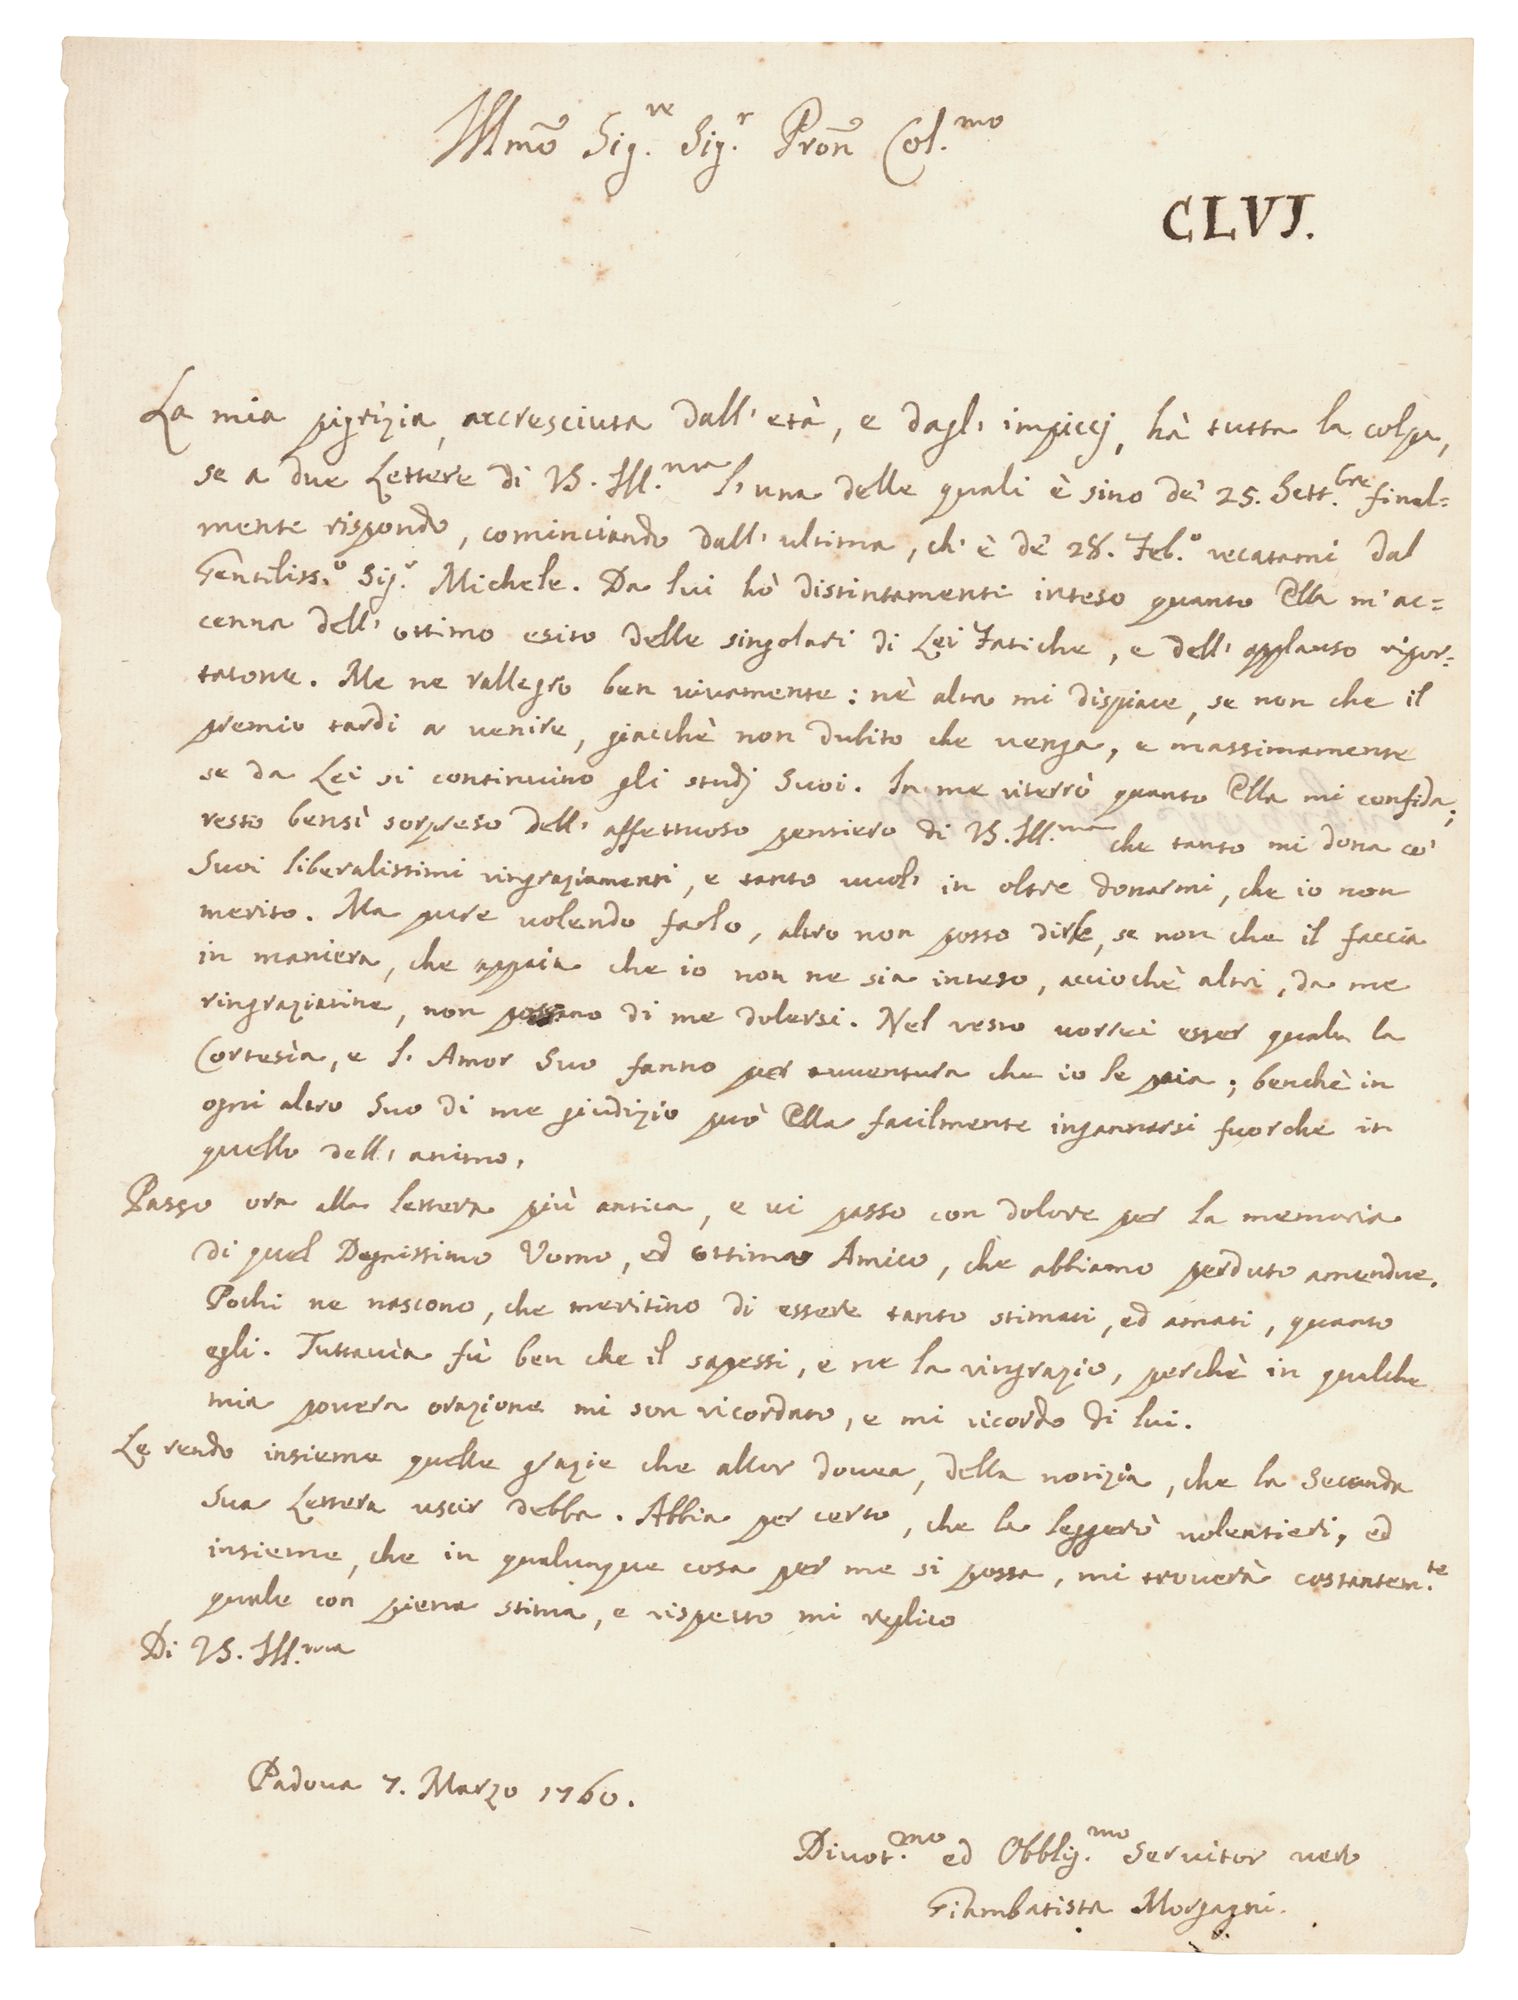 Illmõ Sig.re Sig.r Pron̄ Col.mo
CLVJ.
La mia pigrizia, accresciuta dall' età, e dagl' impiccj, hà tutta la colpa,
se a due Lettere di VS. Ill.ma l' una delle quali è sino de' 25. Sett.bre final=
mente rispondo, cominciando dall' ultima, ch' è de' 28. Feb.o recatami dal
Gentiliss.o Sig.r Michele. Da lui hò distintamente inteso quanto Ella m' ac=
cenna dell' ottimo esito delle singolari di Lei Fatiche, e dell' applauso ripor=
tatone. Me ne rallegro ben vivamente: nè altro mi dispiace, se non che il
premio tardi a venire, giacchè non dubito che venga, e massimamente
se da Lei si continuino gli studj Suoi. In me riterrò quanto Ella mi confida;
resto bensì sorpreso dell' affettuoso pensiero di VS. Ill.ma che tanto mi dona co'
Suoi liberalissimi ringraziamenti, e tanto vuol' in oltre donarmi, che io non
merito. Ma pure volendo farlo, altro non posso dirle, se non che il faccia
in maniera, che appaia che io non ne sia inteso, acciochè altri, da me
ringraziatine, non possano di me dolersi. Nel resto vorrei esser quale la
Cortesìa, e l' Amor Suo fanno per avventura che io le paia; benchè in
ogni altro Suo di me giudizio può Ella facilmente ingannarsi fuorche in
quello dell' animo.
Passo ora alla lettera più antica, e vi passo con dolore per la memoria
di quel Degnissimo Uomo, ed ottimo Amico, che abbiamo perduto amendue.
Pochi ne nascono, che meritino di essere tanto stimati, ed amati, quanto
egli. Tuttavìa fù ben che il sapessi, e ne la ringrazio, perchè in qualche
mia povera orazione mi son ricordato, e mi ricordo di lui.
Le rendo insieme quelle grazie che allor dovea, della notizia, che la Seconda
Sua Lettera uscir debba. Abbia per certo, che la leggerò volentieri, ed
insieme, che in qualunque cosa per me si possa, mi troverà costantem.te
quale con piena stima, e rispetto mi replico
Di VS. Ill.ma
Padova 7. Marzo 1760.
Divot.mo ed Obblig.mo Servitor vero
Giambatista Morgagni.